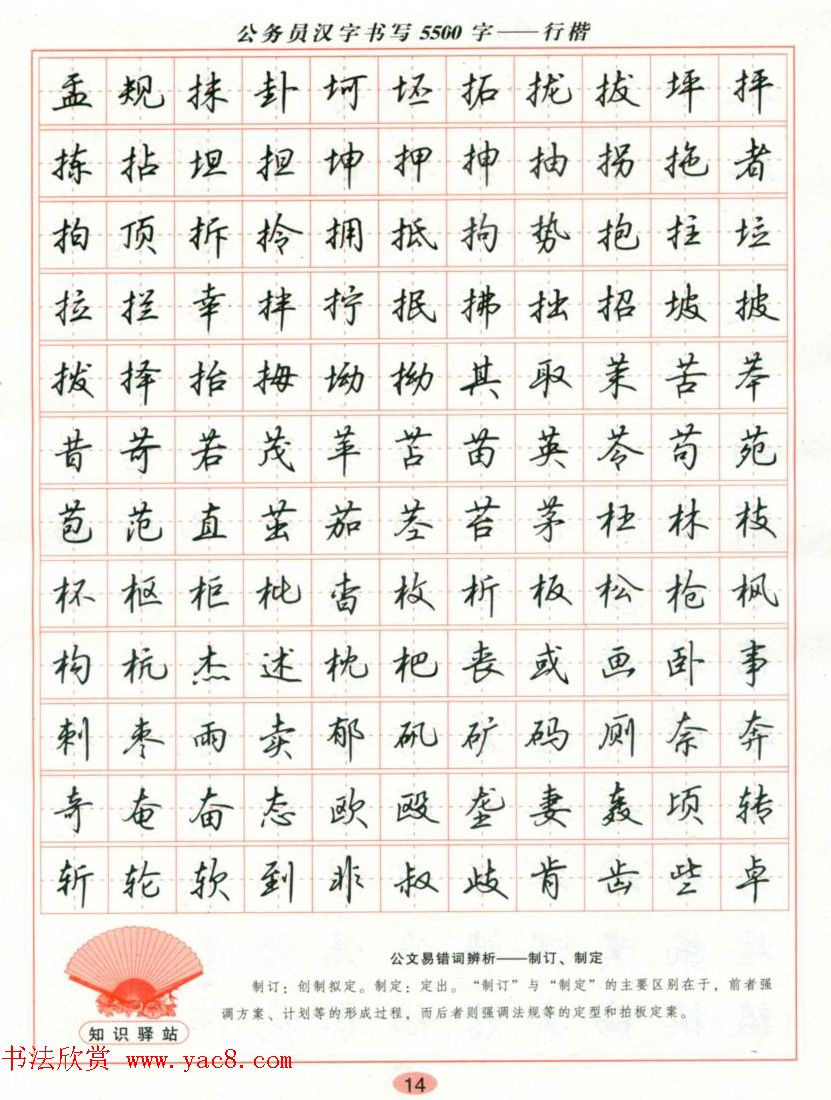 公务员汉字书写5500字——行楷
盂规抹卦坷坯拓拢拔坪抨
拣拈坦担坤押抻抽拐拖者
拍顶拆拎拥抵拘势抱拄垃
拉拦幸拌拧抿拂拙招坡披
拨择抬拇坳拗其取茉苦苯
昔苛若茂苹苫苗英苓苟苑
苞范直茁茄茎苔茅枉林枝
杯枢柜枇杳枚析板松枪枫
构杭杰述枕杷丧或画卧事
刺枣雨卖郁矾矿码厕奈奔
奇奄奋态欧殴垄妻轰顷转
斩轮软到非叔歧肯齿些卓
公文易错词辨析——制订、制定
制订：创制拟定。制定：定出。“制订”与“制定”的主要区别在于，前者强
调方案、计划等的形成过程，而后者则强调法规等的定型和拍板定案。
知识驿站
书法欣赏 www.yac8.com
14